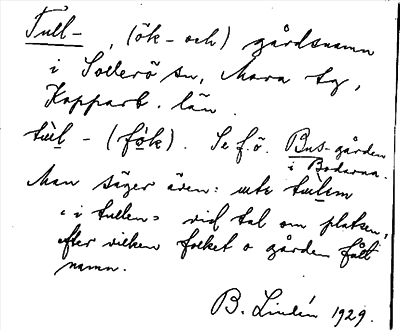 Tull- , (ök- och) gårdsnamn
i Sollerö sn, Mora tg,
Kopparb. län.
tùl - (fók). Se f.ö. Bus-gården
i Bodarna.
Man säger även: ute tulem
"i tullen" vid tal om platsen,
efter vilken folket o gården fått
namn.
B. Lindén 1929.